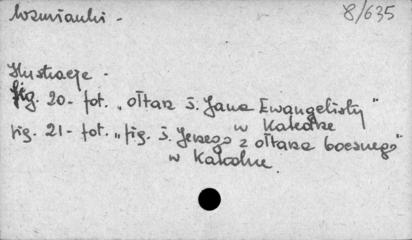 Wzmianki - 8/635
Ilustracje -
fig. 20 - fot. "Ołtarz ś. Jana Ewangelisty"
w Katedrze
fig. 21 - fot. "fig. ś. Jerzego z ołtarza bocznego"
w Katedrze.